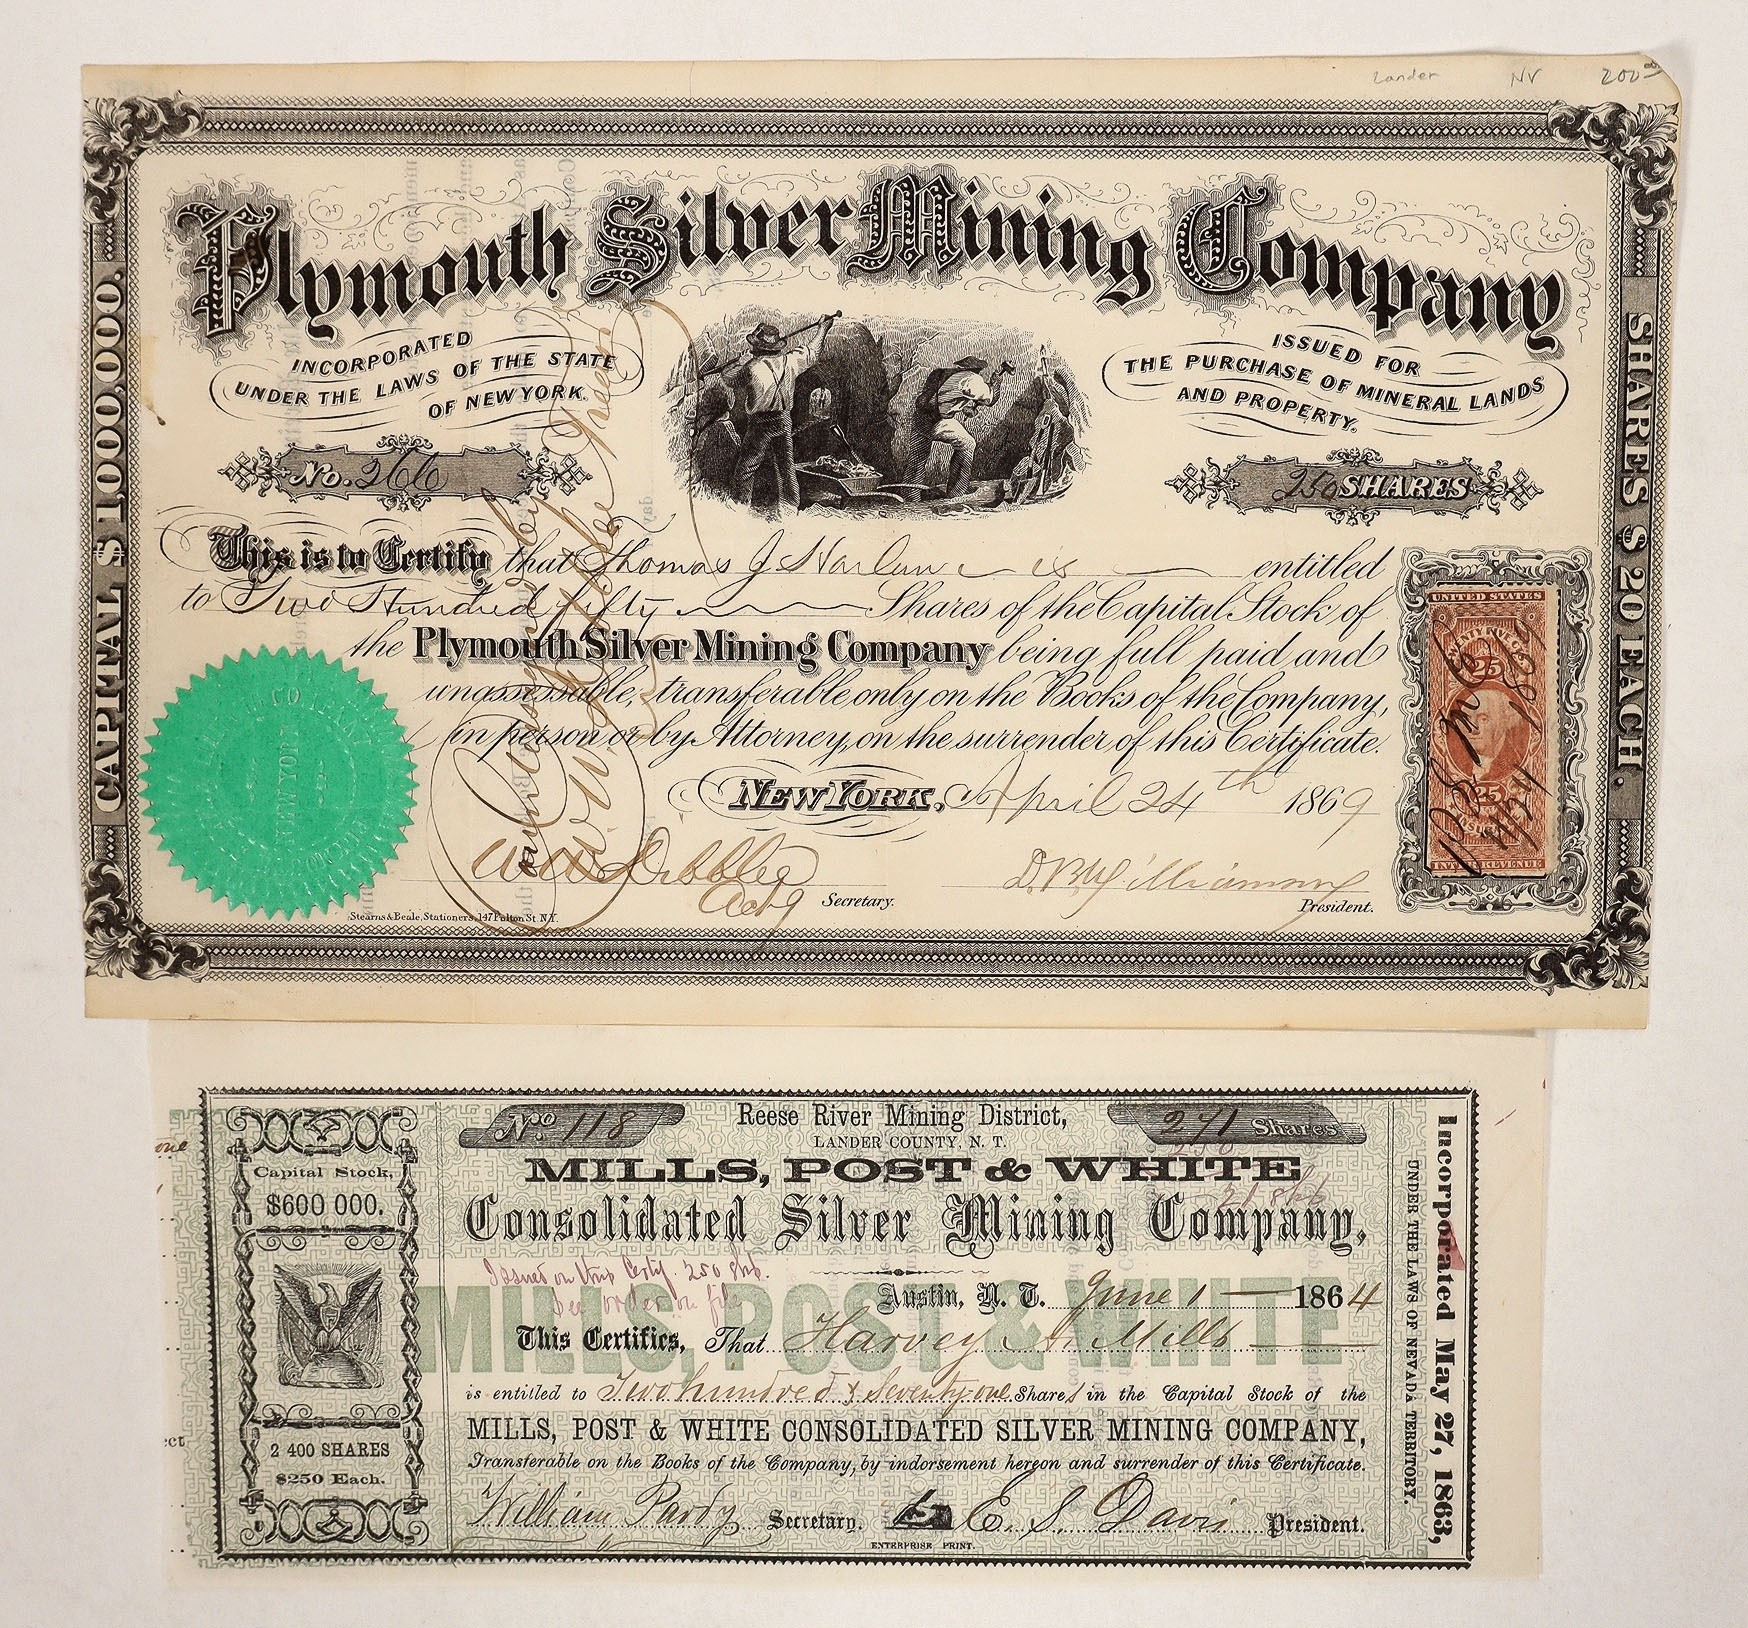 Lander NV 200
Plymouth Silver Mining Company
INCORPORATED
UNDER THE LAWS OF THE STATE
OF NEW YORK.
ISSUED FOR
THE PURCHASE OF MINERAL LANDS
AND PROPERTY.
CAPITAL $ 1,000,000.
SHARES $ 20 EACH.
No. 266
250 SHARES
This is to Certify that Thomas J Harlan is entitled
to Two Hundred fifty Shares of the Capital Stock of
the Plymouth Silver Mining Company being full paid and
unassessable, transferable only on the Books of the Company,
in person or by Attorney, on the surrender of this Certificate.
New York, April 24th 1869
W W Dibblee
Actg Secretary.
D. B. Williamson
President.
Stearns & Beale, Stationers, 147 Fulton St. N.Y.
NEW YORK
UNITED STATES
TWENTY FIVE CENTS
25
25
INTER. REVENUE
P. S. M. Co
4/24 1869
No. 118
Reese River Mining District,
LANDER COUNTY, N. T.
271 Shares
250
21 shs
MILLS, POST & WHITE
Consolidated Silver Mining Company,
Capital Stock,
$600 000.
2 400 SHARES
$250 Each.
Issued on this Certif. 250 shs.
See order on file
MILLS, POST & WHITE
Austin, N. T. June 1 1864
This Certifies, That Harvey A. Mills
is entitled to Two hundred & Seventy-one Shares in the Capital Stock of the
MILLS, POST & WHITE CONSOLIDATED SILVER MINING COMPANY,
Transferable on the Books of the Company, by indorsement hereon and surrender of this Certificate.
William Pardy Secretary. E. S. Davis President.
ENTERPRISE PRINT.
Incorporated May 27, 1863,
UNDER THE LAWS OF NEVADA TERRITORY.